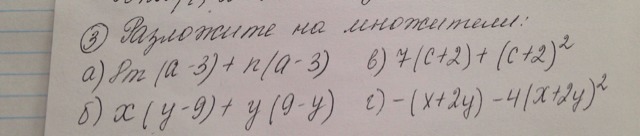 ③ Разложите на множители:
а) 8m(a-3)+n(a-3) в) 7(c+2)+(c+2)²
б) x(y-9)+y(9-y) г) -(x+2y)-4(x+2y)²